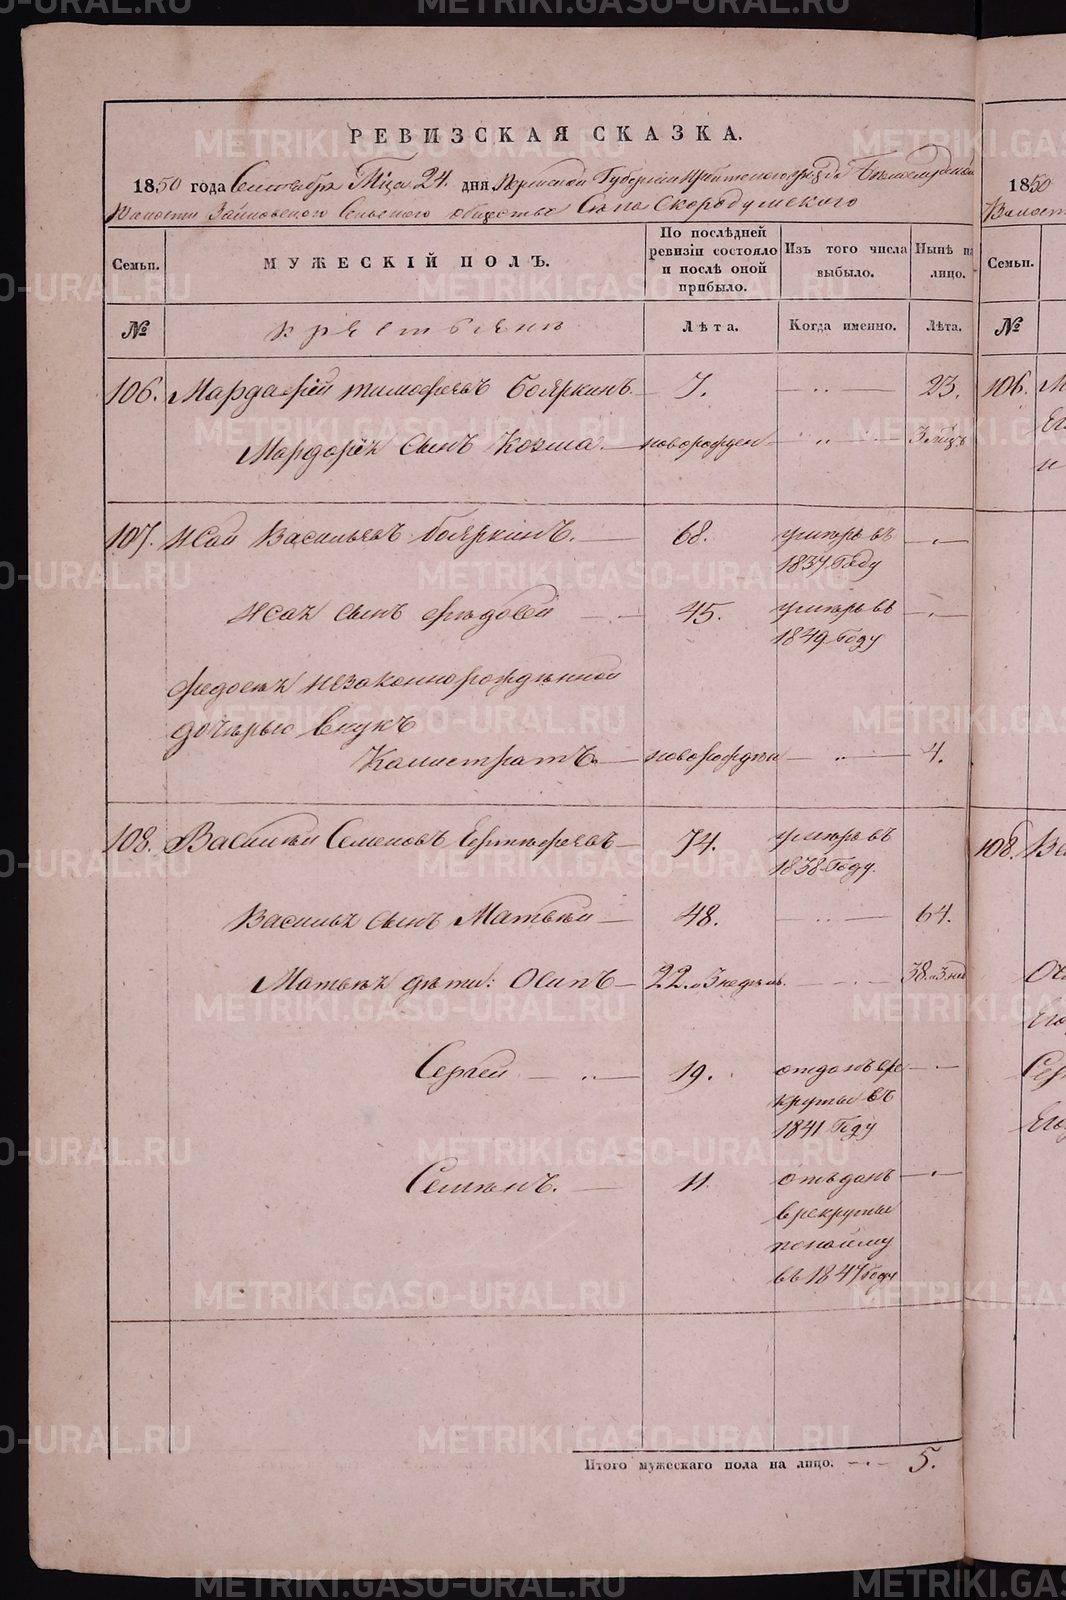 РЕВИЗСКАЯ СКАЗКА.
1850 года Сентября Мца 24. дня Пермской Губернии Ирбитского уезда Белослудской
Волости Зайковского Сельского общества Села Скородумского
Семьи. МУЖЕСКІЙ ПОЛЪ. По послѣдней ревизіи состояло и послѣ оной прибыло. Изъ того числа выбыло. Нынѣ на лицо.
№ крестьяне Лѣта. Когда именно. Лѣта.
106. Мардарей тимофеевъ бояркинъ 7. — 23.
Мардарья сынъ Козма. новорожден — 3 мѣцъ
107. Исай Васильевъ бояркинъ. 68. умеръ въ 1837 Году —
Исая сынъ 45. умеръ въ 1849 Году —
незаконнорожденной
дочерью внукъ
Калистратъ новорожден — 4.
108. Василей Семеновъ 74. умеръ въ 1838 Году.
Василья сынъ Матвей 48. — 64.
Матвея дѣти: Осипъ 22. и 3 недель. — 38. и 3 нед
Сергей 19. отданъ въ рекруты въ 1841 Году —
Семенъ. 11. отъданъ в рекруты по найму въ 1847 Году —
Итого мужескаго пола на лицо. 5.
1850
Волост
Семьи.
№
106. М
108. Ва
METRIKI.GASO-URAL.RU